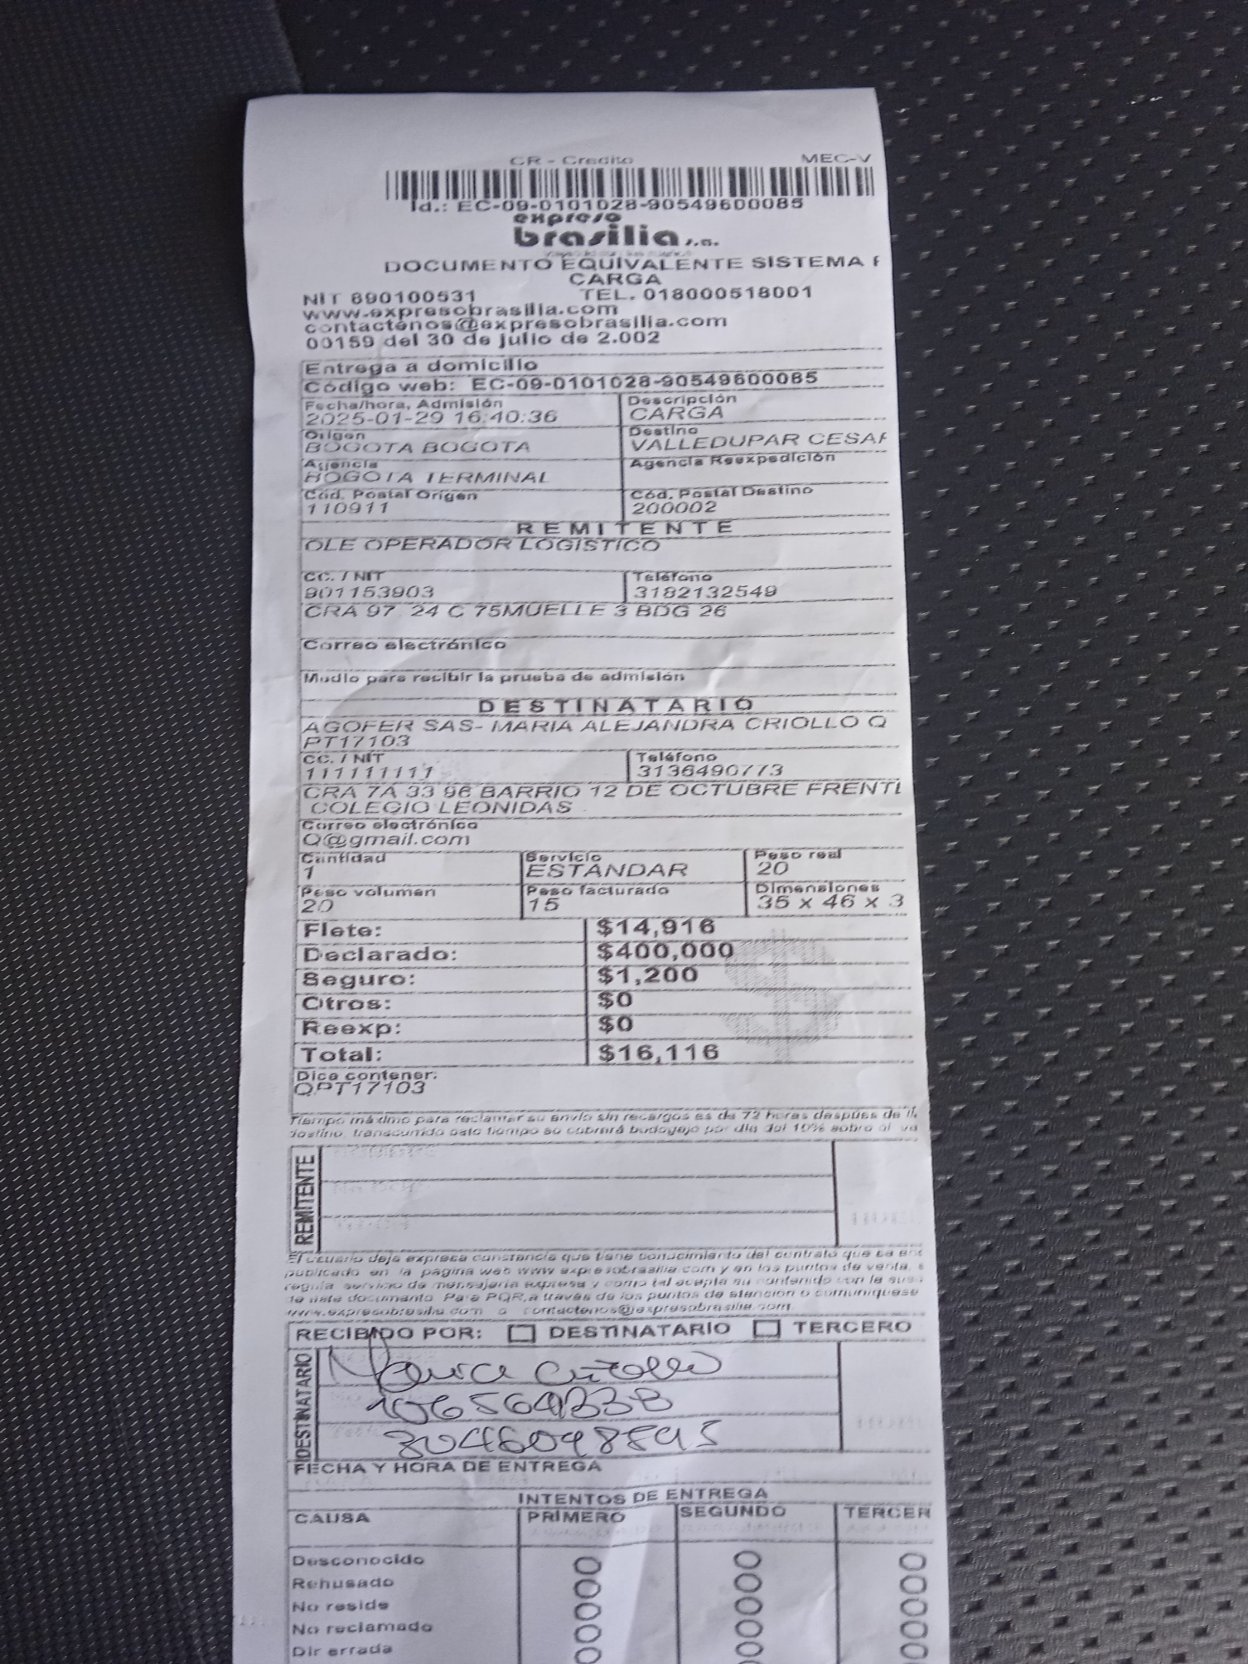 CR - Credito MEC-V
Id.: EC-09-0101028-90549600085
expreso
brasilia s.a.
DOCUMENTO EQUIVALENTE SISTEMA P
CARGA
NIT 890100531 TEL. 018000518001
www.expresobrasilia.com
contactenos@expresobrasilia.com
00159 del 30 de julio de 2.002
Entrega a domicilio
Código web: EC-09-0101028-90549600085
Fecha/hora, Admisión Descripción
2025-01-29 16:40:36 CARGA
Origen Destino
BOGOTA BOGOTA VALLEDUPAR CESAR
Agencia Agencia Reexpedición
BOGOTA TERMINAL
Cód. Postal Origen Cód. Postal Destino
110911 200002
REMITENTE
OLE OPERADOR LOGISTICO
CC. / NIT Teléfono
901153903 3182132549
CRA 97 24 C 75MUELLE 3 BDG 26
Correo electrónico
Medio para recibir la prueba de admisión
DESTINATARIO
AGOFER SAS- MARIA ALEJANDRA CRIOLLO Q
PT17103
CC. / NIT Teléfono
111111111 3136490773
CRA 7A 33 96 BARRIO 12 DE OCTUBRE FRENTE
COLEGIO LEONIDAS
Correo electrónico
Q@gmail.com
Cantidad Servicio Peso real
1 ESTANDAR 20
Peso volumen Peso facturado Dimensiones
20 15 35 x 46 x 3
Flete: $14,916
Declarado: $400,000
Seguro: $1,200
Otros: $0
Reexp: $0
Total: $16,116
Dice contener:
QPT17103
Tiempo máximo para reclamar su envío sin recargos es de 72 horas después de ll
destino, transcurrido este tiempo se cobrará bodegaje por día del 10% sobre el va
REMITENTE
El usuario deja expresa constancia que tiene conocimiento del contrato que se en
publicado en la pagina web www.expresobrasilia.com y en los puntos de venta,
regula servicio de mensajería expresa y como tal acepta su contenido con la sus
de este documento. Para PQR,a traves de los puntos de atención o comuniquese
www.expresobrasilia.com o contactenos@expresobrasilia.com.
RECIBIDO POR: DESTINATARIO TERCERO
DESTINATARIO
Criollo
FECHA Y HORA DE ENTREGA
INTENTOS DE ENTREGA
CAUSA PRIMERO SEGUNDO TERCER
Desconocido
Rehusado
No reside
No reclamado
Dir errada